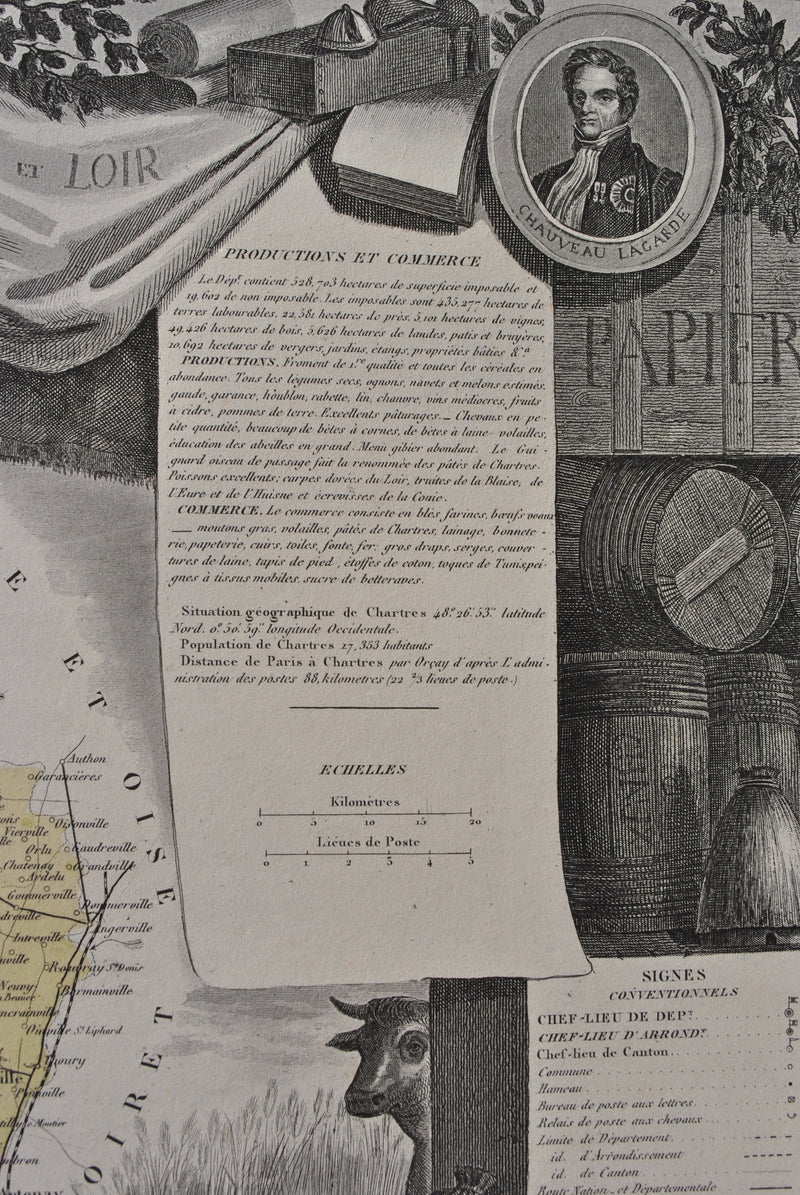 ET LOIR
CHAUVEAU LAGARDE
PAPIER
PRODUCTIONS ET COMMERCE
Le Dépt. contient 528,703 hectares de superficie imposable et
19,602 de non imposable. Les imposables sont 435,277 hectares de
terres labourables, 22,581 hectares de près, 5,101 hectares de vignes,
49,426 hectares de bois, 5,626 hectares de landes, patis et bruyères,
10,692 hectares de vergers, jardins, étangs, propriétés bâties &a
PRODUCTIONS. Froment de 1re qualité et toutes les céréales en
abondance. Tous les légumes secs, ognons, navets et melons estimés,
gaude, garance, houblon, rabette, lin, chanvre, vins médiocres, fruits
à cidre, pommes de terre. Excellents pâturages. _ Chevaux en pe-
tite quantité, beaucoup de bêtes à cornes, de bêtes à laine, volailles,
éducation des abeilles en grand. Menu gibier abondant. Le Gui-
gnard oiseau de passage fait la renommée des pâtés de Chartres.
Poissons excellents; carpes dorées du Loir, truites de la Blaise, de
l'Eure et de l'Huisne et écrevisses de la Conie.
COMMERCE. Le commerce consiste en blés, farines, bœufs veaux
___ moutons gras, volailles, pâtés de Chartres, lainage, bonnete-
rie, papeterie, cuirs, toiles, fonte, fer, gros draps, serges, couver-
tures de laine, tapis de pied, étoffes de coton, toques de Tunis, pei-
gnes à tissus mobiles, sucre de betteraves.
Situation géographique de Chartres 48.° 26.' 53." latitude
Nord. 0.° 50.' 59." longitude Occidentale.
Population de Chartres 17,353 habitants
Distance de Paris à Chartres par Orçay d'après L'admi-
nistration des postes 88, kilometres (22 2/3 lieues de poste.)
ECHELLES
Kilomètres
0 5 10 15 20
Lieues de Poste
0 1 2 3 4 5
E ET OISE
LOIRET
Authon
Garancières
Oisonville
Vierville
Orlu
Gaudreville
Chatenay
Grandville
Ardelu
Gommerville
Dommerville
Angerville
Intreville
Rouvray St. Denis
Neuvy
Barmainville
Oinville St. Liphard
Toury
Poinville
SIGNES
CONVENTIONNELS
CHEF-LIEU DE DEPT.
CHEF-LIEU D'ARRONDT.
Chef-lieu de Canton
Commune
Hameau
Bureau de poste aux lettres
Relais de poste aux chevaux
Limite de Département
id. d'Arrondissement
id. de Canton
Route Nation. et Départementale